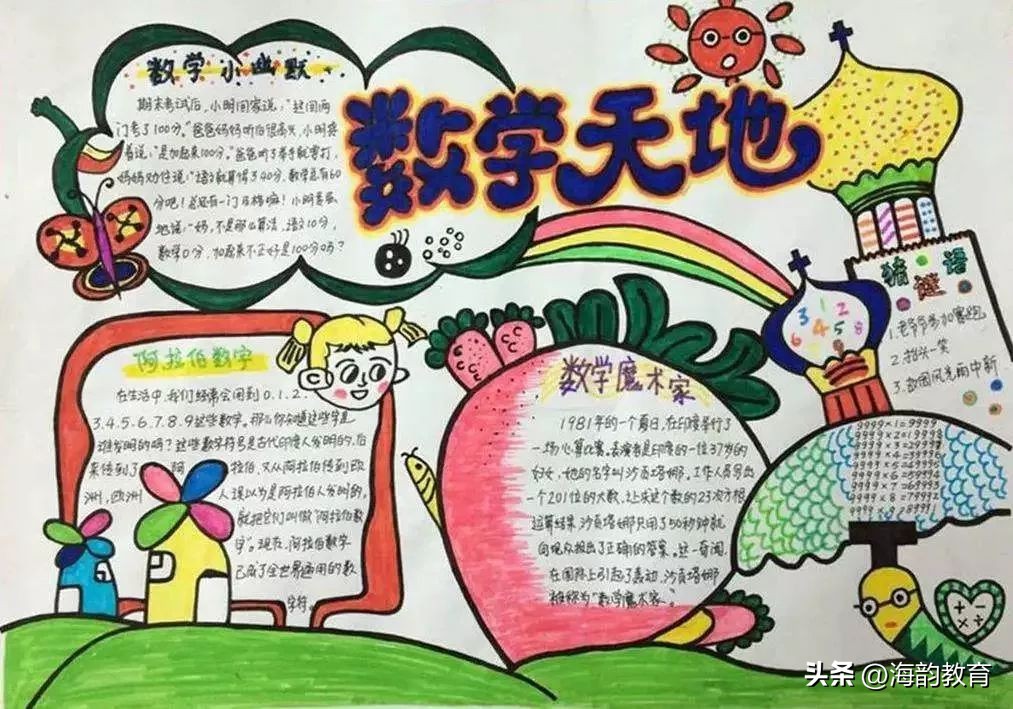 数学天地
数学小幽默
期末考试后，小明回家说："这回两
门考了100分。"爸爸妈妈听后很高兴，小明接
着说："是加起来100分。"爸爸听了举手就要打，
妈妈劝住说："语文就算得了40分，数学总有60
分吧！总还有一门及格嘛！小明委屈
地说："妈，不是那么算法，语文10分，
数学0分，加起来不正好是100分吗？
阿拉伯数字
在生活中，我们经常会用到0.1.2.
3.4.5.6.7.8.9这些数字。那么你知道这些字是
谁发明的吗？这些数字符号是古代印度人发明的，后
来传到了阿拉伯，又从阿拉伯传到欧
洲，欧洲人误以为是阿拉伯人发明的，
就把它们叫做"阿拉伯数
字"。现在，阿拉伯数字
已成了全世界通用的数
字符。
数学魔术家
1981年的一个夏日，在印度举行了
一场心算比赛。表演者是印度的一位37岁的
妇女，她的名字叫沙贡塔娜。工作人员写出
一个201位的大数，让求这个数的23次方根
运算结果，沙贡塔娜只用了50秒钟就
向观众报出了正确的答案。这一奇闻
在国际上引起了轰动，沙贡塔娜
被称为"数学魔术家。"
猜谜语
1.老爷爷参加赛跑
2.抬头一笑
3.故国风光雨中新
3 1 2
6 4 5 8
9999×1=9999
9999×2=19998
9999×4=39996
9999×5=49995
9999×7=69993
9999×8=79992
9999×9=89991
+ - × ÷
头条 @海韵教育